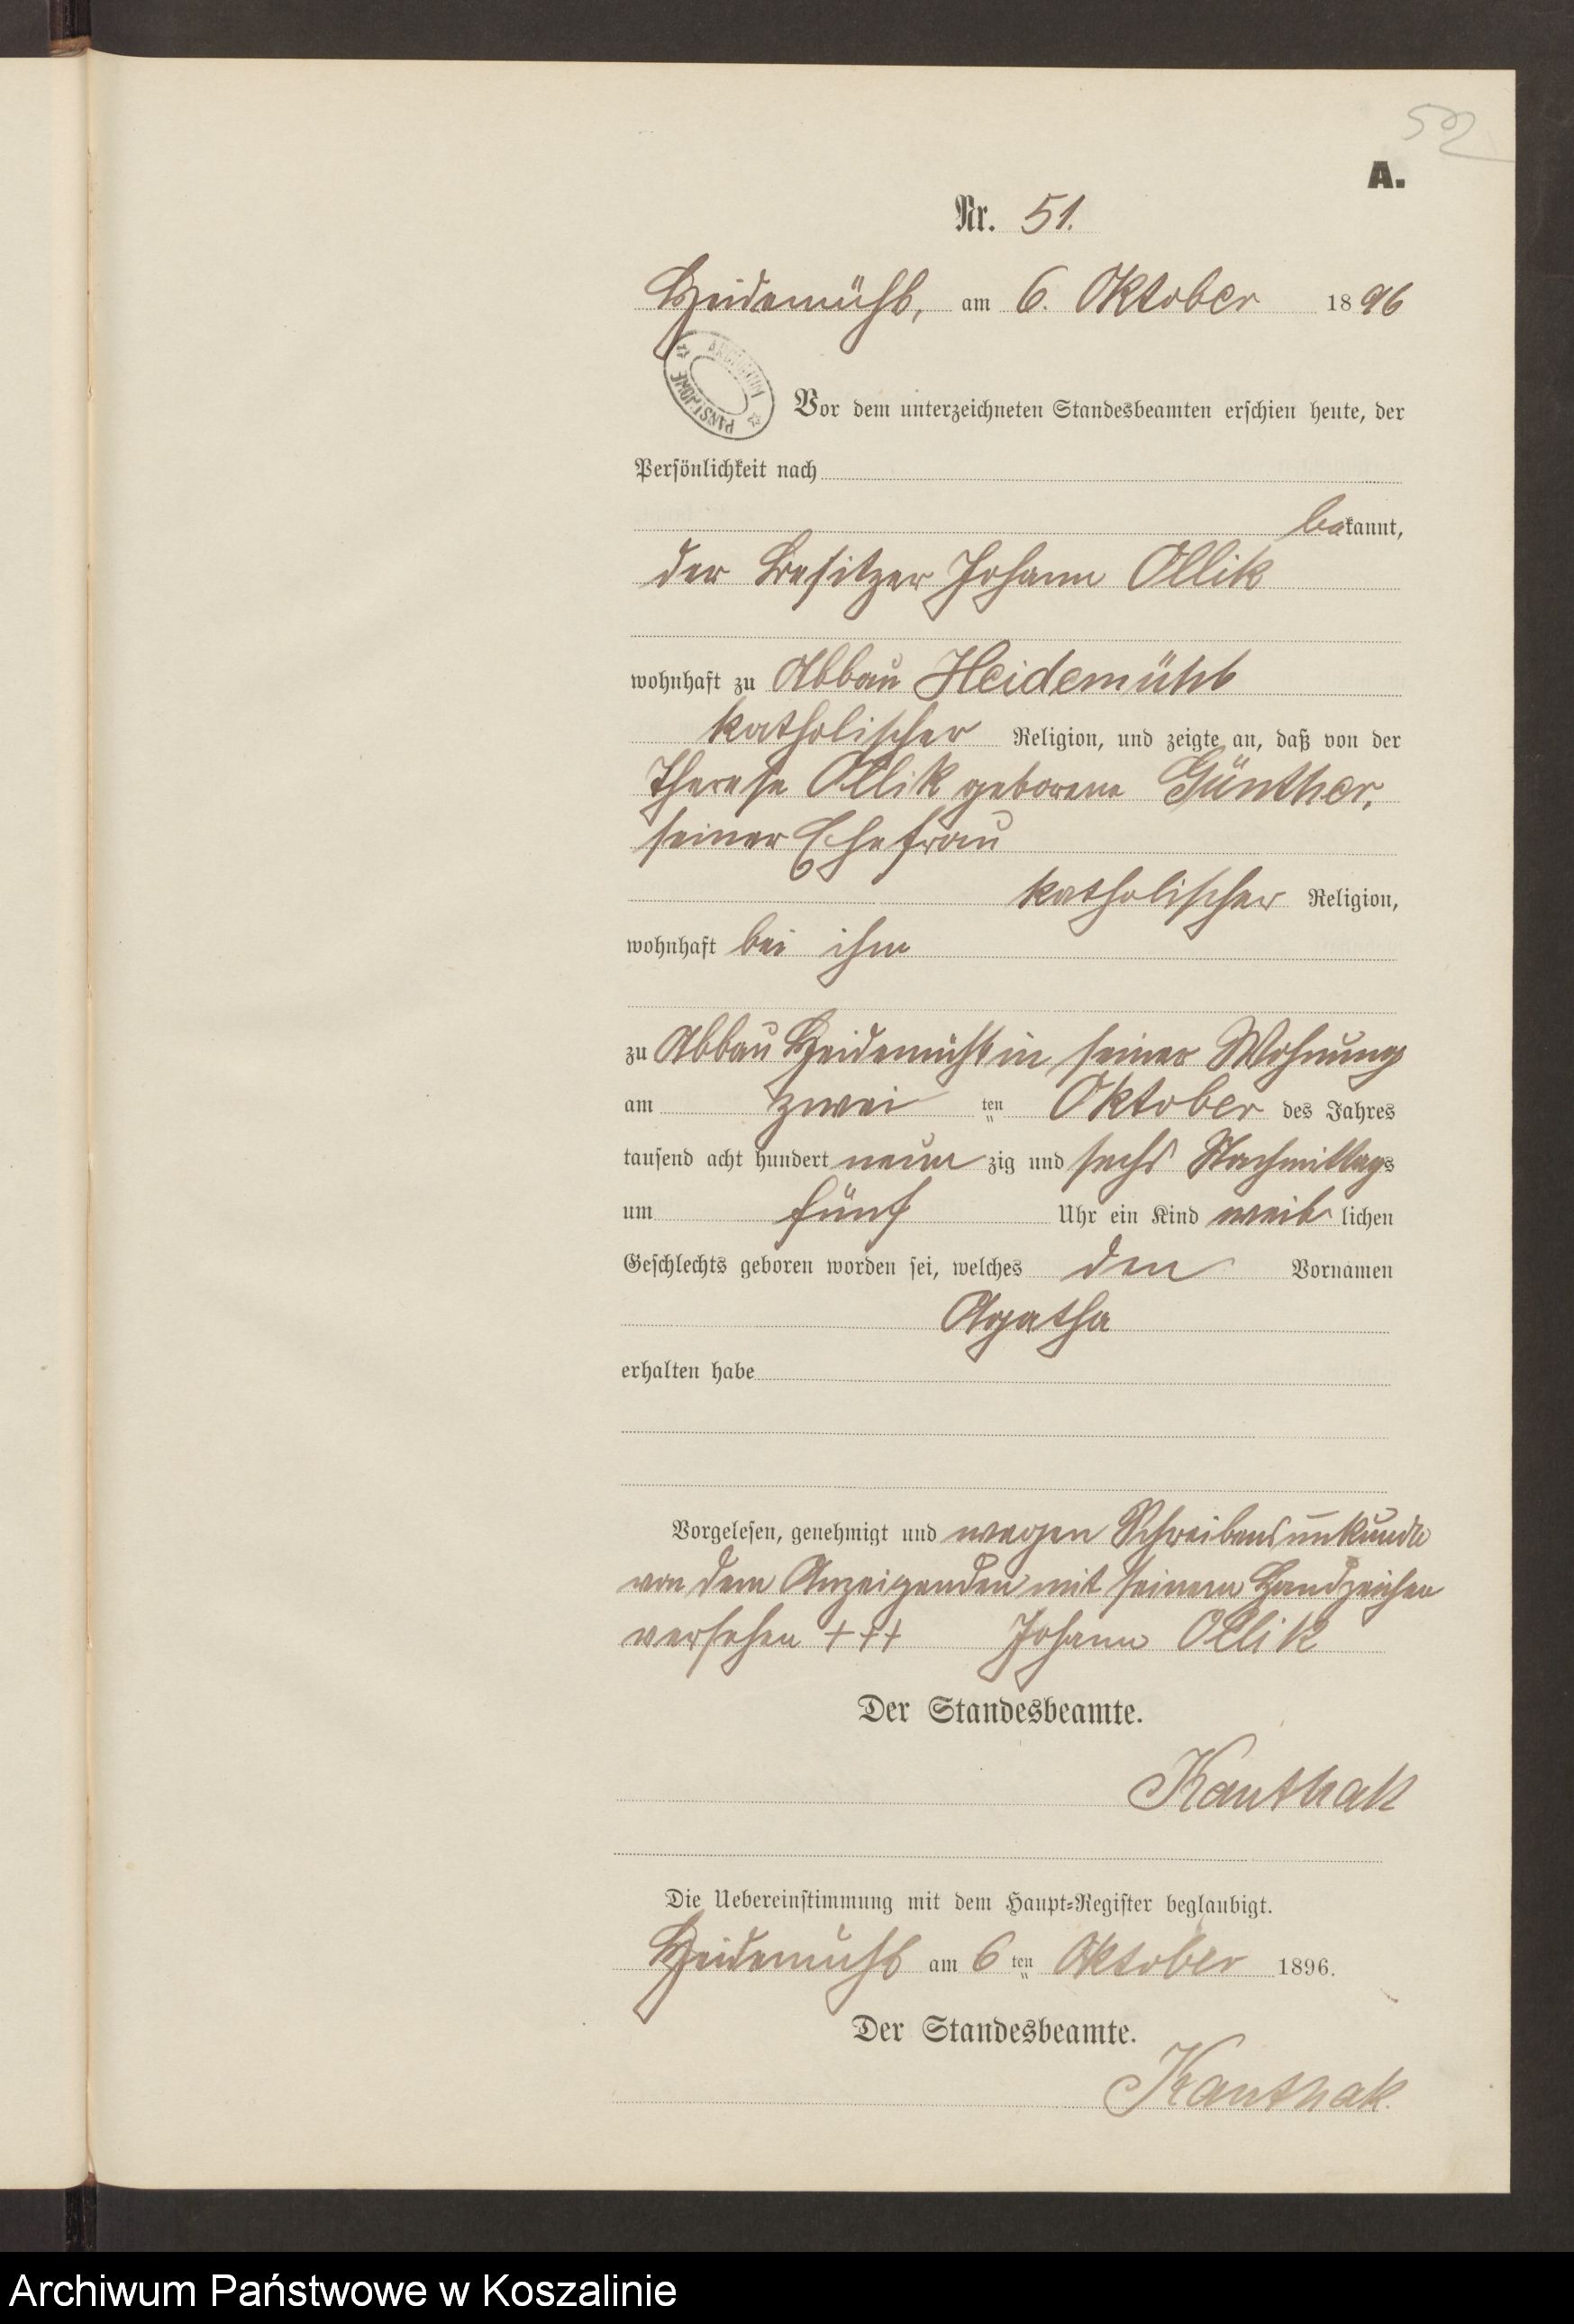 502
A.
Nr. 51.
Heidemühl, am 6. Oktober 1896
ARCHIWUM PAŃSTWOWE
Vor dem unterzeichneten Standesbeamten erschien heute, der
Persönlichkeit nach
bekannt,
der Besitzer Johann Ollik
wohnhaft zu Abbau Heidemühl
katholischer Religion, und zeigte an, daß von der
Therese Ollik geborene Günther,
seiner Ehefrau
katholischer Religion,
wohnhaft bei ihm
zu Abbau Heidemühl in seiner Wohnung
am zwei ten Oktober des Jahres
tausend acht hundert neun zig und sechs Nachmittags
um fünf Uhr ein Kind weib lichen
Geschlechts geboren worden sei, welches den Vornamen
Agatha
erhalten habe
Vorgelesen, genehmigt und wegen Schreibensunkunde
von dem Anzeigenden mit seinem Handzeichen
versehen +++ Johann Ollik
Der Standesbeamte.
Kanthak
Die Uebereinstimmung mit dem Haupt-Register beglaubigt.
Heidemühl am 6 ten Oktober 1896.
Der Standesbeamte.
Kanthak.
Archiwum Państwowe w Koszalinie